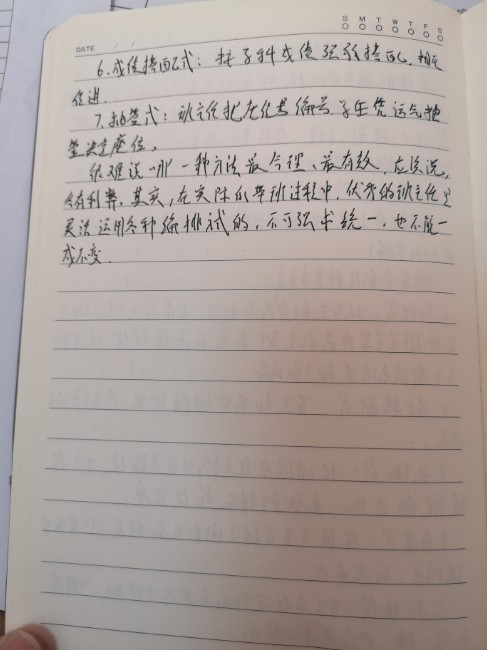 S M T W T F S
DATE / /
6.成绩搭配式：按学科成绩强弱搭配，相互
促进.
7.抽签式：班主任把座位号编号，学生凭运气抽
签决定座位。
很难说哪一种方法最合理、最有效，应该说，
各有利弊。其实，在实际的带班过程中，优秀的班主任是
灵活运用各种编排式的，不可强求统一，也不能一
成不变.